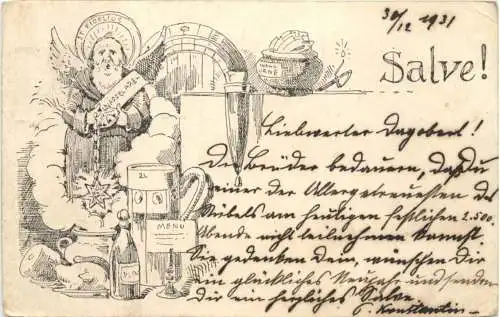 30/12 1931
ST. FIDELIUS
Salve!
Liebwerter Dagobert!
Die Brüder bedauern, daß Du
einer der Allergetreuesten des
Kübels am heutigen festlichen
Abende nicht teilnehmen kannst
Sie gedenken Dein, wünschen Dir
ein glückliches Neujahr und senden
Dir ein herzliches Salve.
Konstantin
MENU